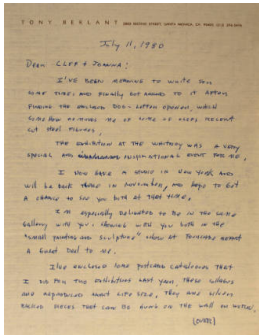 TONY BERLANT
July 11, 1980
Dear CLEF + JOANNA:
I'VE BEEN MEANING TO WRITE YOU
SOME TIME, AND FINALLY GOT AROUND TO IT AFTER
FINDING THE ENCLOSED DOG-LETTER OPENER, WHICH
SOMEHOW REMINDS ME OF SOME OF RECENT
CUT STEEL FIGURES.
THE EXHIBITION AT THE WHITNEY WAS A VERY
SPECIAL AND INSPIRATIONAL EVENT FOR ME.
I NOW HAVE A IN NEW YORK AND
will be back THERE IN NOVEMBER, AND hope TO GET
A CHANCE TO SEE YOU BOTH AT THAT TIME.
I'M ESPECIALLY DELIGHTED TO BE IN THE SAME
GALLERY WITH YOU. SHOWING WITH YOU BOTH IN THE
"SMALL PAINTING AND SCULPTURE" SHOW AT MEANT
A GREAT DEAL TO ME.
I'VE ENCLOSED SOME POSTCARD CATALOGUES THAT
I DID FOR TWO EXHIBITIONS LAST YEAR. THESE
ARE REPRODUCED ABOUT LIFE SIZE, THEY ARE
PIECES THAT CAN BE HUNG ON THE WALL OR
(OVER)